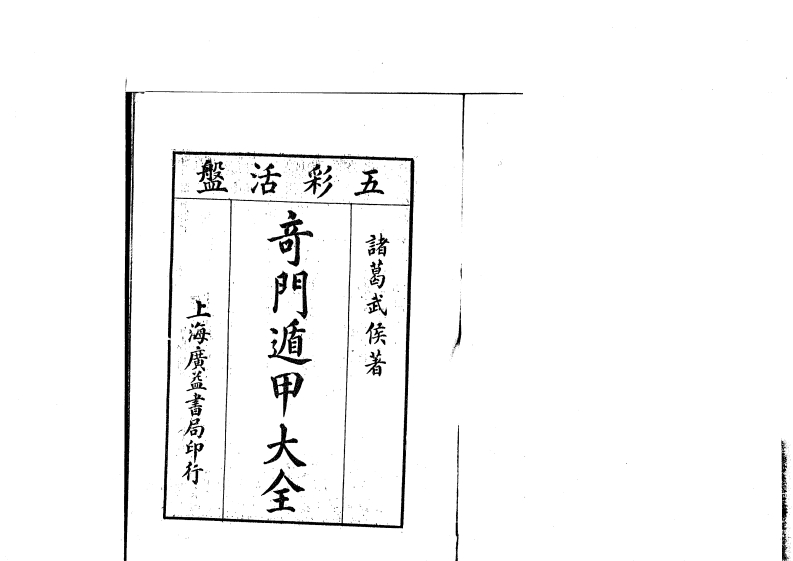 五彩活盤
諸葛武侯著
奇門遁甲大全
上海廣益書局印行